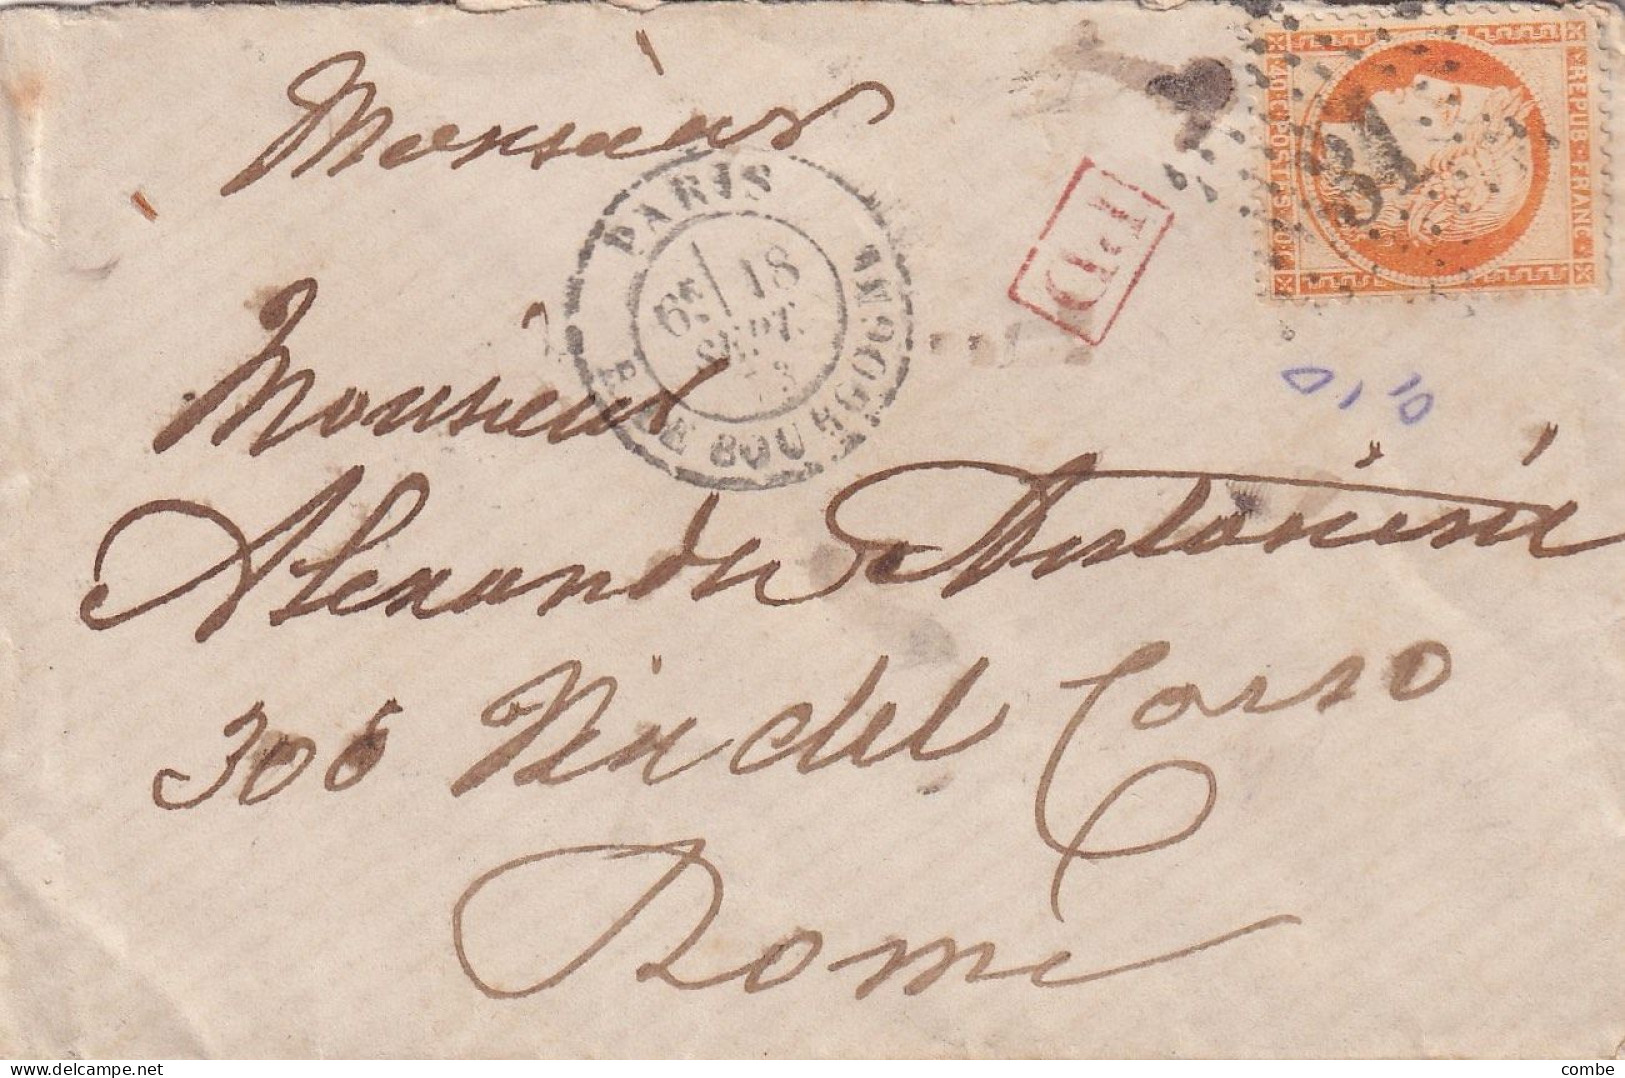 Monsieur
Monsieur
Alexandre Antonini
306 Via del Corso
Rome
PARIS
R. DE BOURGOGNE
6E 18
SEPT.
73
P.D.
31
REPUB. FRANC.
40 C. POSTES 40
delcampe.net
combe